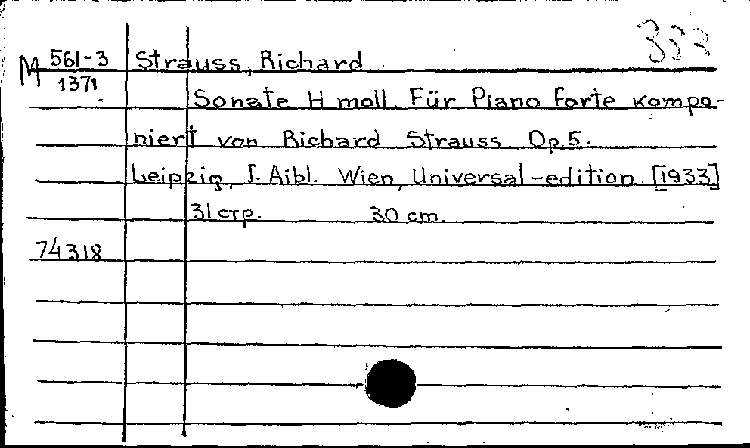 353
M 561-3 Strauss, Richard
1371
Sonate H moll. Für Piano forte kompo-
niert von Richard Strauss Op.5.
Leipzig, J. Aibl. Wien, Universal-edition [1933]
31 стр. 30 cm.
74318